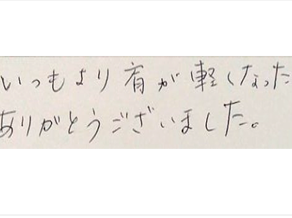 いつもより肩が軽くなった
ありがとうございました。